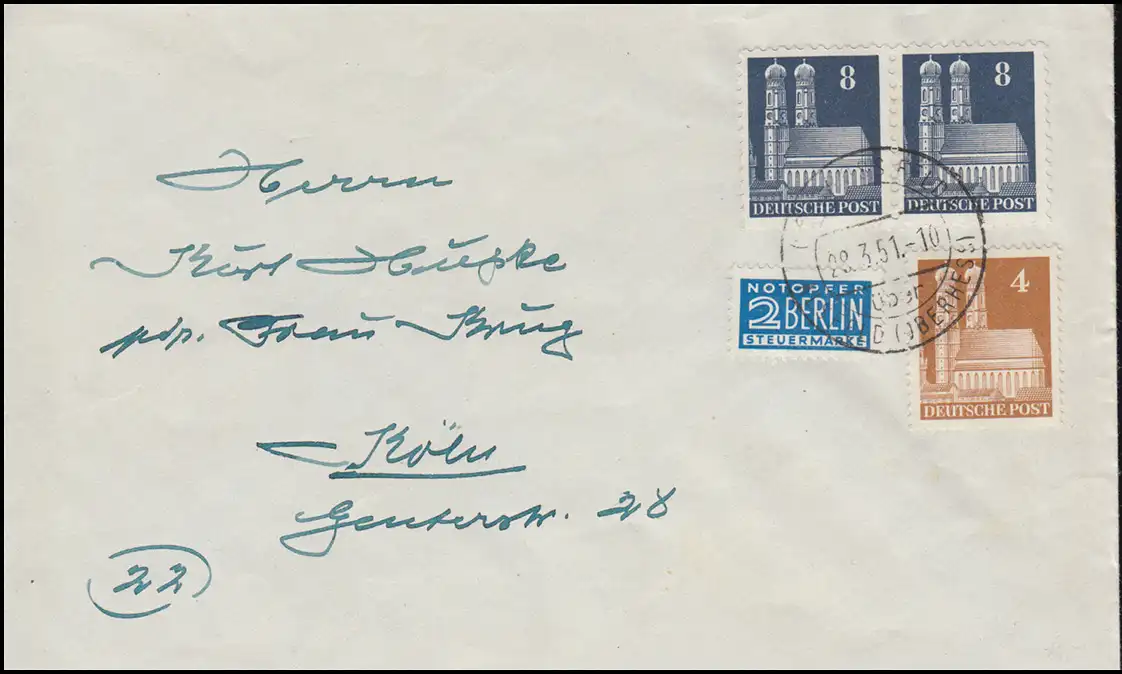 8 8
DEUTSCHE POST DEUTSCHE POST
28.3.51.-10
über
(OBERHESS)
NOTOPFER
2 BERLIN
STEUERMARKE
4
DEUTSCHE POST
Herrn
Kurt
p/Adr. Frau Krug
Köln
Genterstr. 28
22